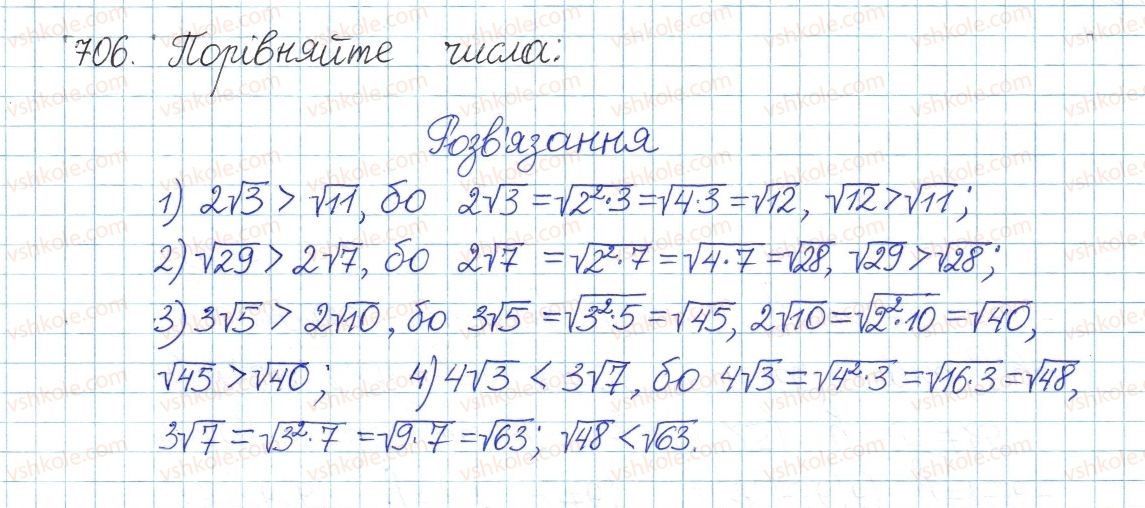 706. Порівняйте числа:
Розв'язання
1) 2√3 > √11, бо 2√3 = √2²·3 = √4·3 = √12, √12 > √11;
2) √29 > 2√7, бо 2√7 = √2²·7 = √4·7 = √28, √29 > √28;
3) 3√5 > 2√10, бо 3√5 = √3²·5 = √45, 2√10 = √2²·10 = √40,
√45 > √40; 4) 4√3 < 3√7, бо 4√3 = √4²·3 = √16·3 = √48,
3√7 = √3²·7 = √9·7 = √63; √48 < √63.